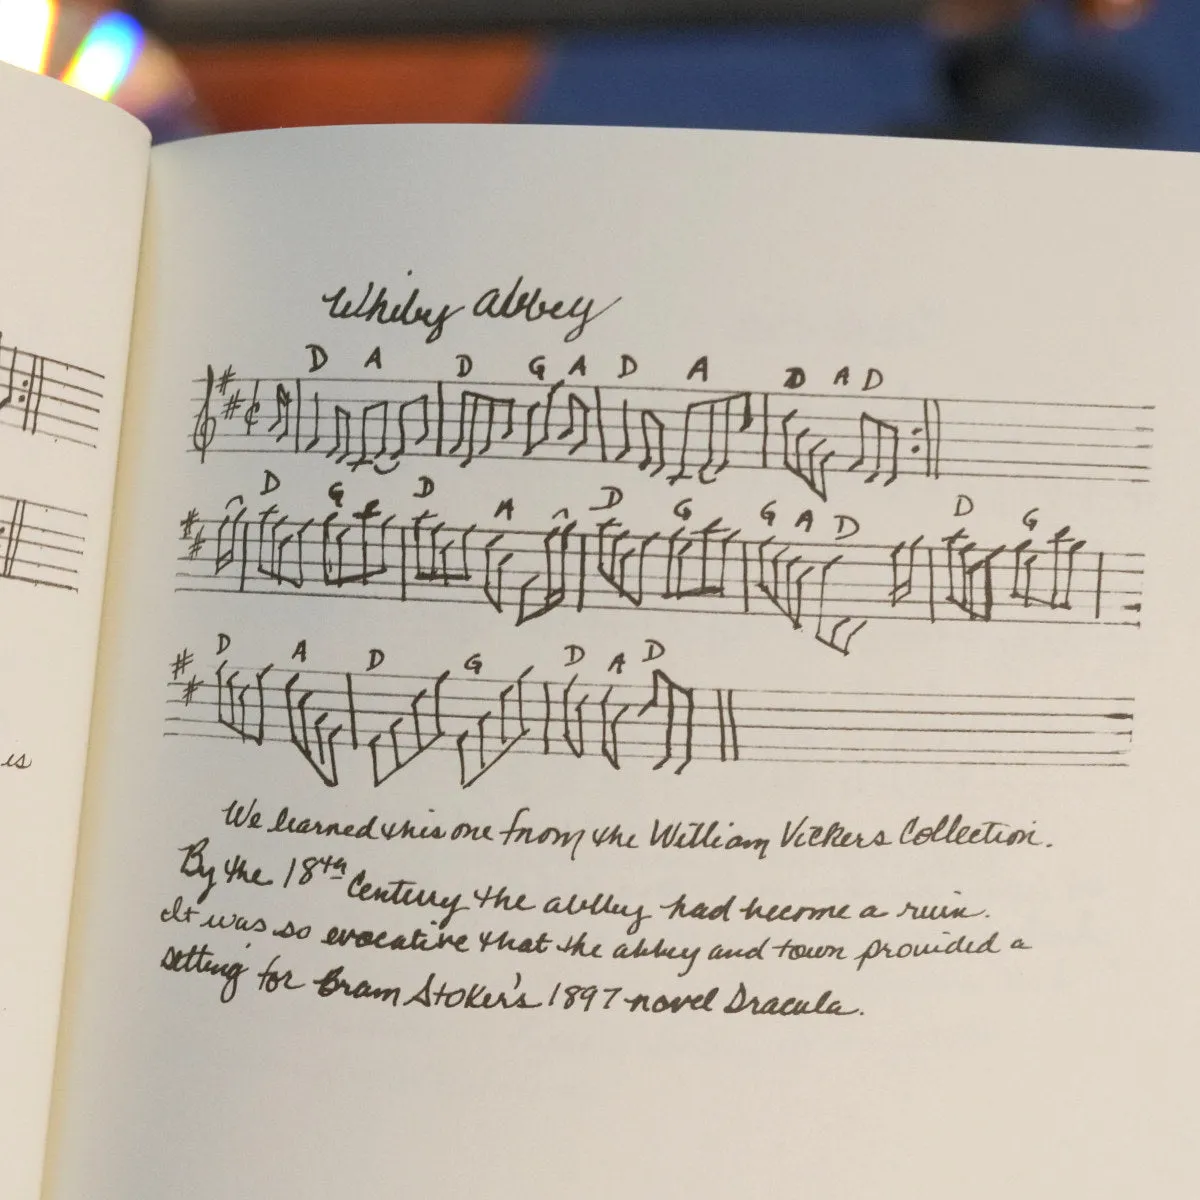 Whitby Abbey
D A D G A D A D A D
D G D A D G G A D D G
D A D G D A D
is
We learned this one from the William Vickers Collection.
By the 18th Century the abbey had become a ruin.
It was so evocative that the abbey and town provided a
setting for Bram Stoker's 1897 novel Dracula.